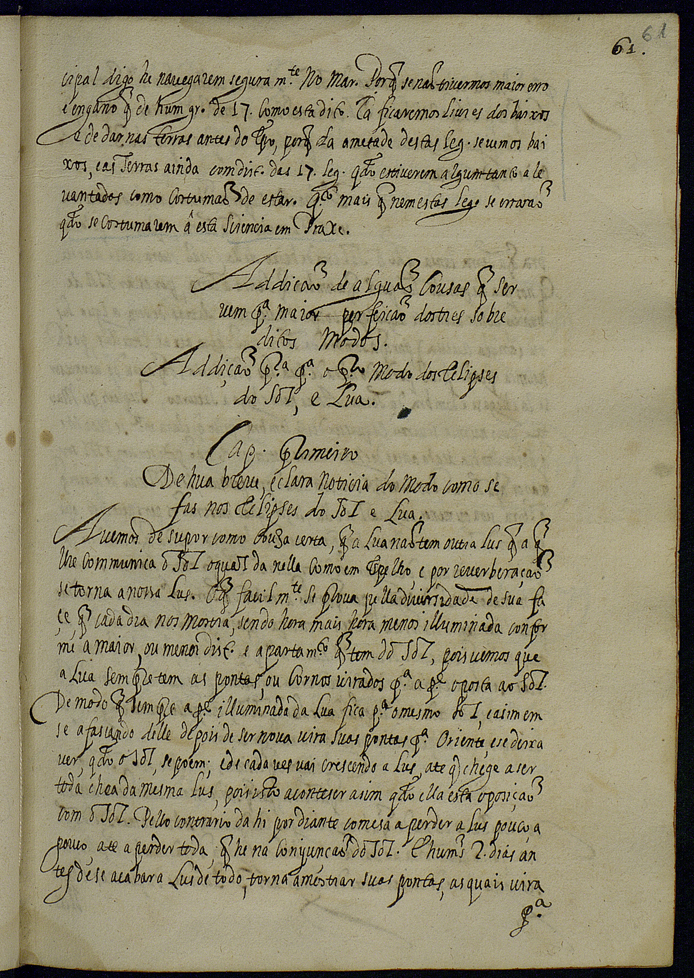 61. 61
cipal digo he navegarem segura m.te No Mar. Porq̃ se não tivermos maior erro
e engano q̃ de hum gr. de 17. como esta dito. Ia ficaremos livres dos baixos
e de dar nas terras antes do tp̃o, porq̃ Ia ametade destas leg. se vemos bai
xos, e as Terras ainda com dist. das 17. leg. qdo estiverem algum tanto ale
vantados como Costumaõ de estar. Qto mais q̃ nem estas lego se erraraõ
qdo se Costumarem á esta Sciencia em Praxe.
Addicaõ de alguãs Cousas q̃ Ser
vem p.a maior perfeicaõ dos tres sobre
ditos Modos.
Addiçaõ pr.a p.a o pr.o Modo dos Eclipses
do Sol, e Lua.
Cap. primeiro
De hua breve, e clara noticia do Modo como se
fas nos Eclipses do Sol e Lua.
Avemos de supor como couza certa, q̃ a Lua naõ tem outra Lus q̃ a q̃
lhe communica o Sol o qual da nella como em Espelho e por reverberaçaõ
se torna a nossa Lus. O q̃ facil m.te se prova pella diversidade de sua fa
çe q̃ cada dia nos mostra, sendo hora mais hora menos illuminada confor
me a maior, ou menor dist. e apartam.to q̃ tem do Sol, pois vemos que
a Lua sempre tem as pontas, ou Cornos virados p.a a p.e oposta ao Sol.
De modo q̃ sempre a p.e illuminada da Lua fica p.a o mesmo Sol, e asim em
se afastando delle depois de ser nova vira suas pontas p.a Oriente, e se deixa
ver, qdo o Sol, se poem; e de cada ves vai crescendo a Lus, ate q̃ chege a ser
toda chea da mesma Lus, pois isto aconteser asim qdo ella esta oposiçaõ
com o Sol. Pello contrario da hi por diante comesa a perder a Lus pouco, a
pouco ate a perder toda, q̃ he na conjuncaõ do Sol. E hum, 2. dias an
tes de se acabar a Lus de todo, torna a mostrar suas pontas, as quais vira
p.a